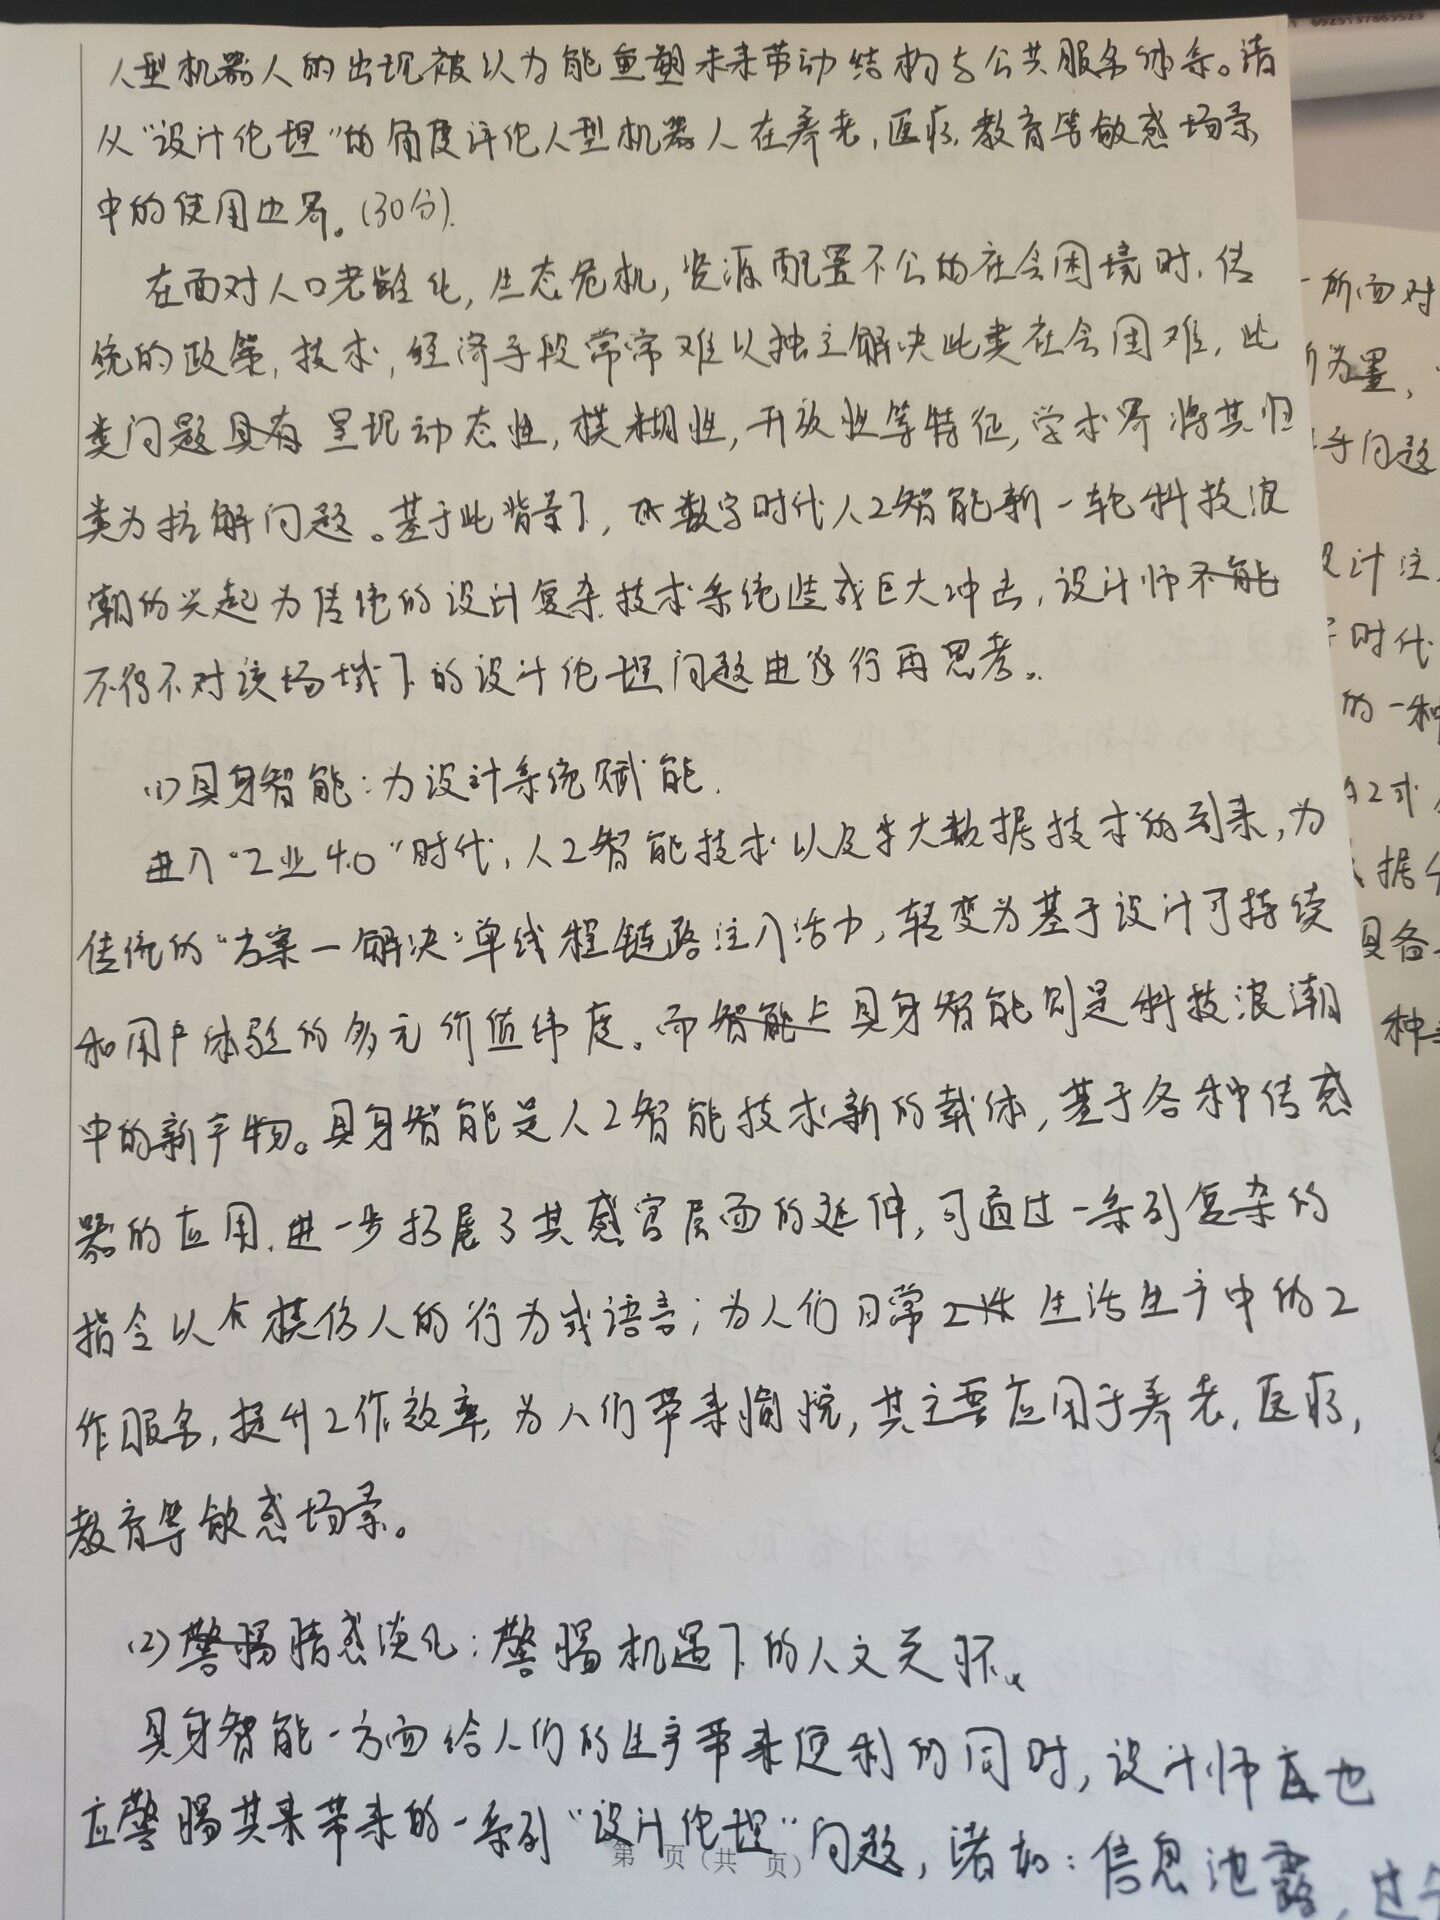 6925137869923
人型机器人的出现被以为能重塑未来带动结构与公共服务体系。请
从“设计伦理”的角度评论人型机器人在养老,医疗,教育等敏感场景
中的使用边界。(30分).
在面对人口老龄化,生态危机,资源配置不公的社会困境时,传
统的政策,技术,经济手段常常难以独立解决此类社会困难,此
类问题具有呈现动态性,模糊性,开放性等特征,学术界将其归
类为抗解问题。基于此背景下,数字时代人工智能新一轮科技浪
潮的兴起为传统的设计复杂技术系统造成巨大冲击,设计师不能
不得不对该场域下的设计伦理问题进行再思考。
(1)具身智能:为设计系统赋能.
进入“工业4.0”时代,人工智能技术以及大数据技术的到来,为
传统的“方案—解决”单线程链路注入活力,转变为基于设计可持续
和用户体验的多元价值纬度。而智能上具身智能则是科技浪潮
中的新产物。具身智能是人工智能技术新的载体,基于各种传感
器的应用,进一步拓展了其感官层面的延伸,可通过一系列复杂的
指令以模仿人的行为或语言;为人们日常工作生活生产中的工
作服务,提升工作效率,为人们带来愉悦,其主要应用于养老,医疗,
教育等敏感场景。
(2)警惕情感淡化:警惕机遇下的人文关怀。
具身智能一方面给人们的生产带来便利的同时,设计师也
应警惕其来带来的一系列“设计伦理”问题,诸如:信息泄露,过
第 页(共 页)
一所面对
所为墨,
手问题
设计注
时代
的一种
据
具备
种